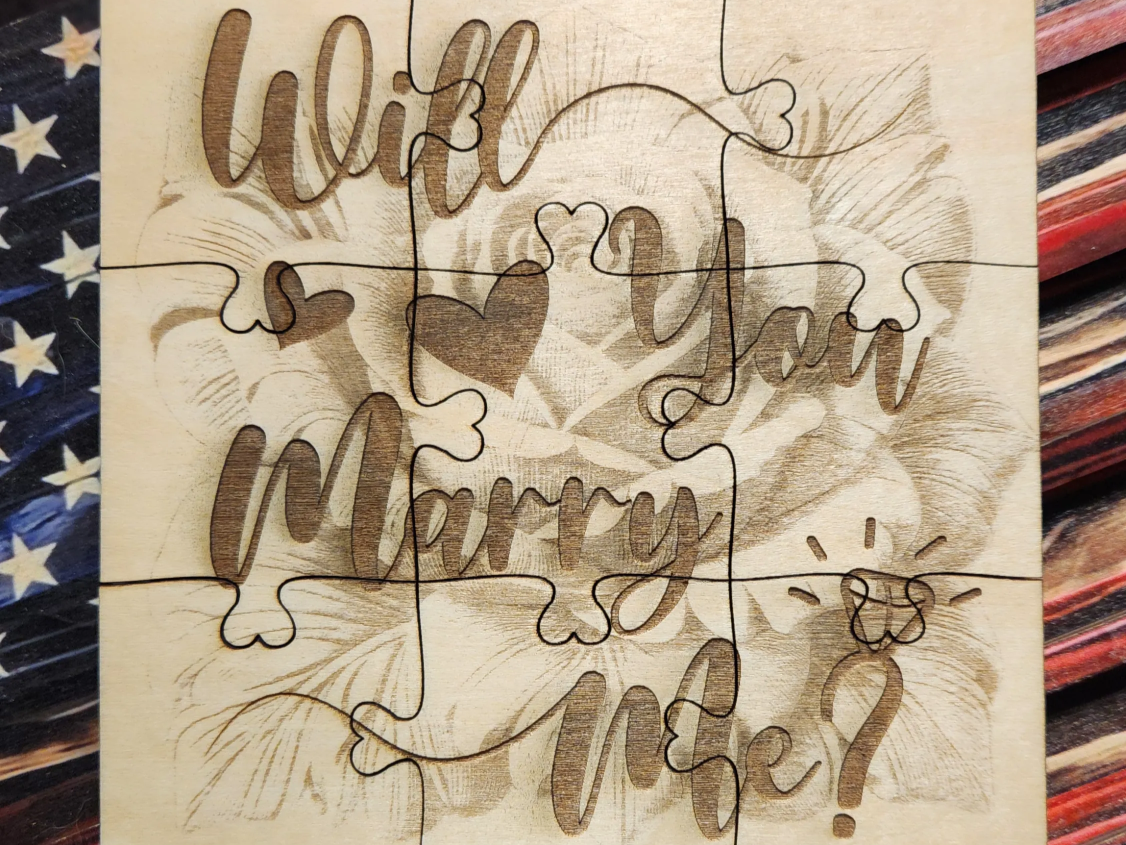 Will
You
Marry
Me?